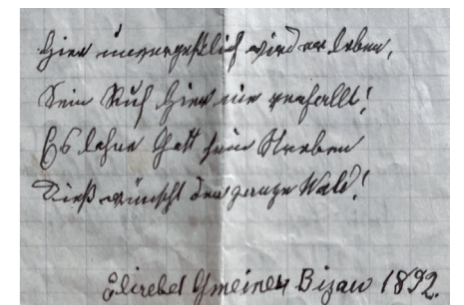 Hier unvergeßlich wird er leben,
Sein Ruf hier nie verhallt!
Es lohne Gott sein Streben
Dieß wünscht der ganze Wald!
Elisebet Gmeiner Bizau 1892.